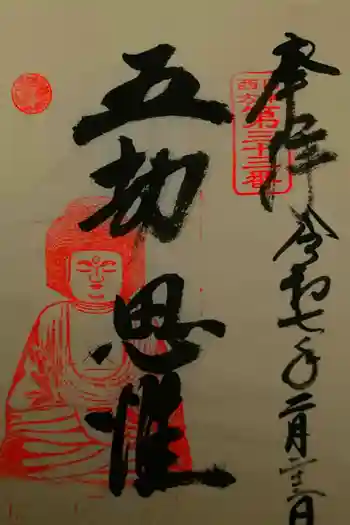 奉拝
令和七年二月二三日
第三十三番
五劫思惟